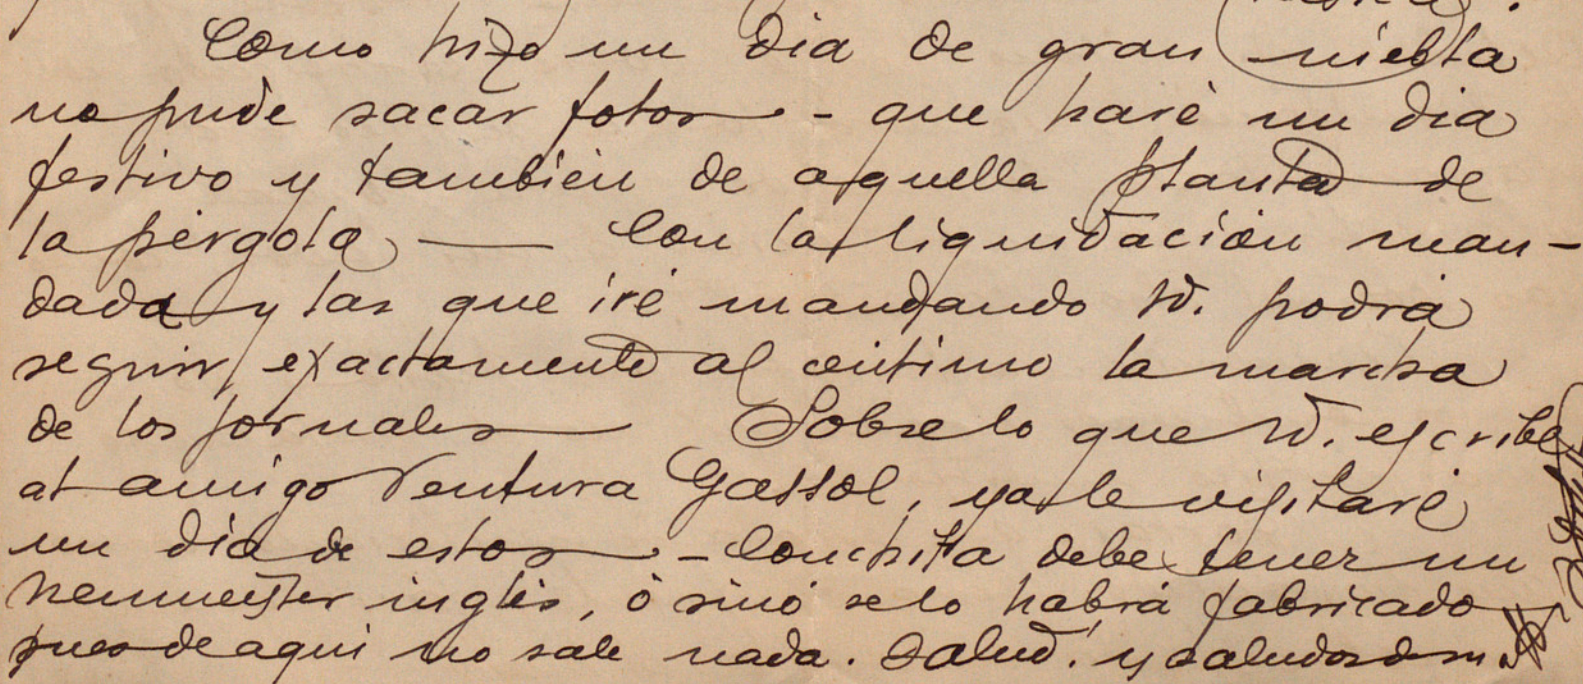 Como hizo un dia de gran niebla
no pude sacar fotos - que haré un dia
festivo y también de aquella planta de
la pérgola — Con la liquidación man-
dada y las que iré mandando Vd. podrá
seguir exactamente al céntimo la marcha
de los jornales Sobre lo que Vd. escribe
al amigo Ventura Gassol, ya le visitaré
un dia de estos - Conchita debe tener un
inglés, ó sinó se lo habrá fabricado
pues de aqui no sale nada. Salud! y saludos de su